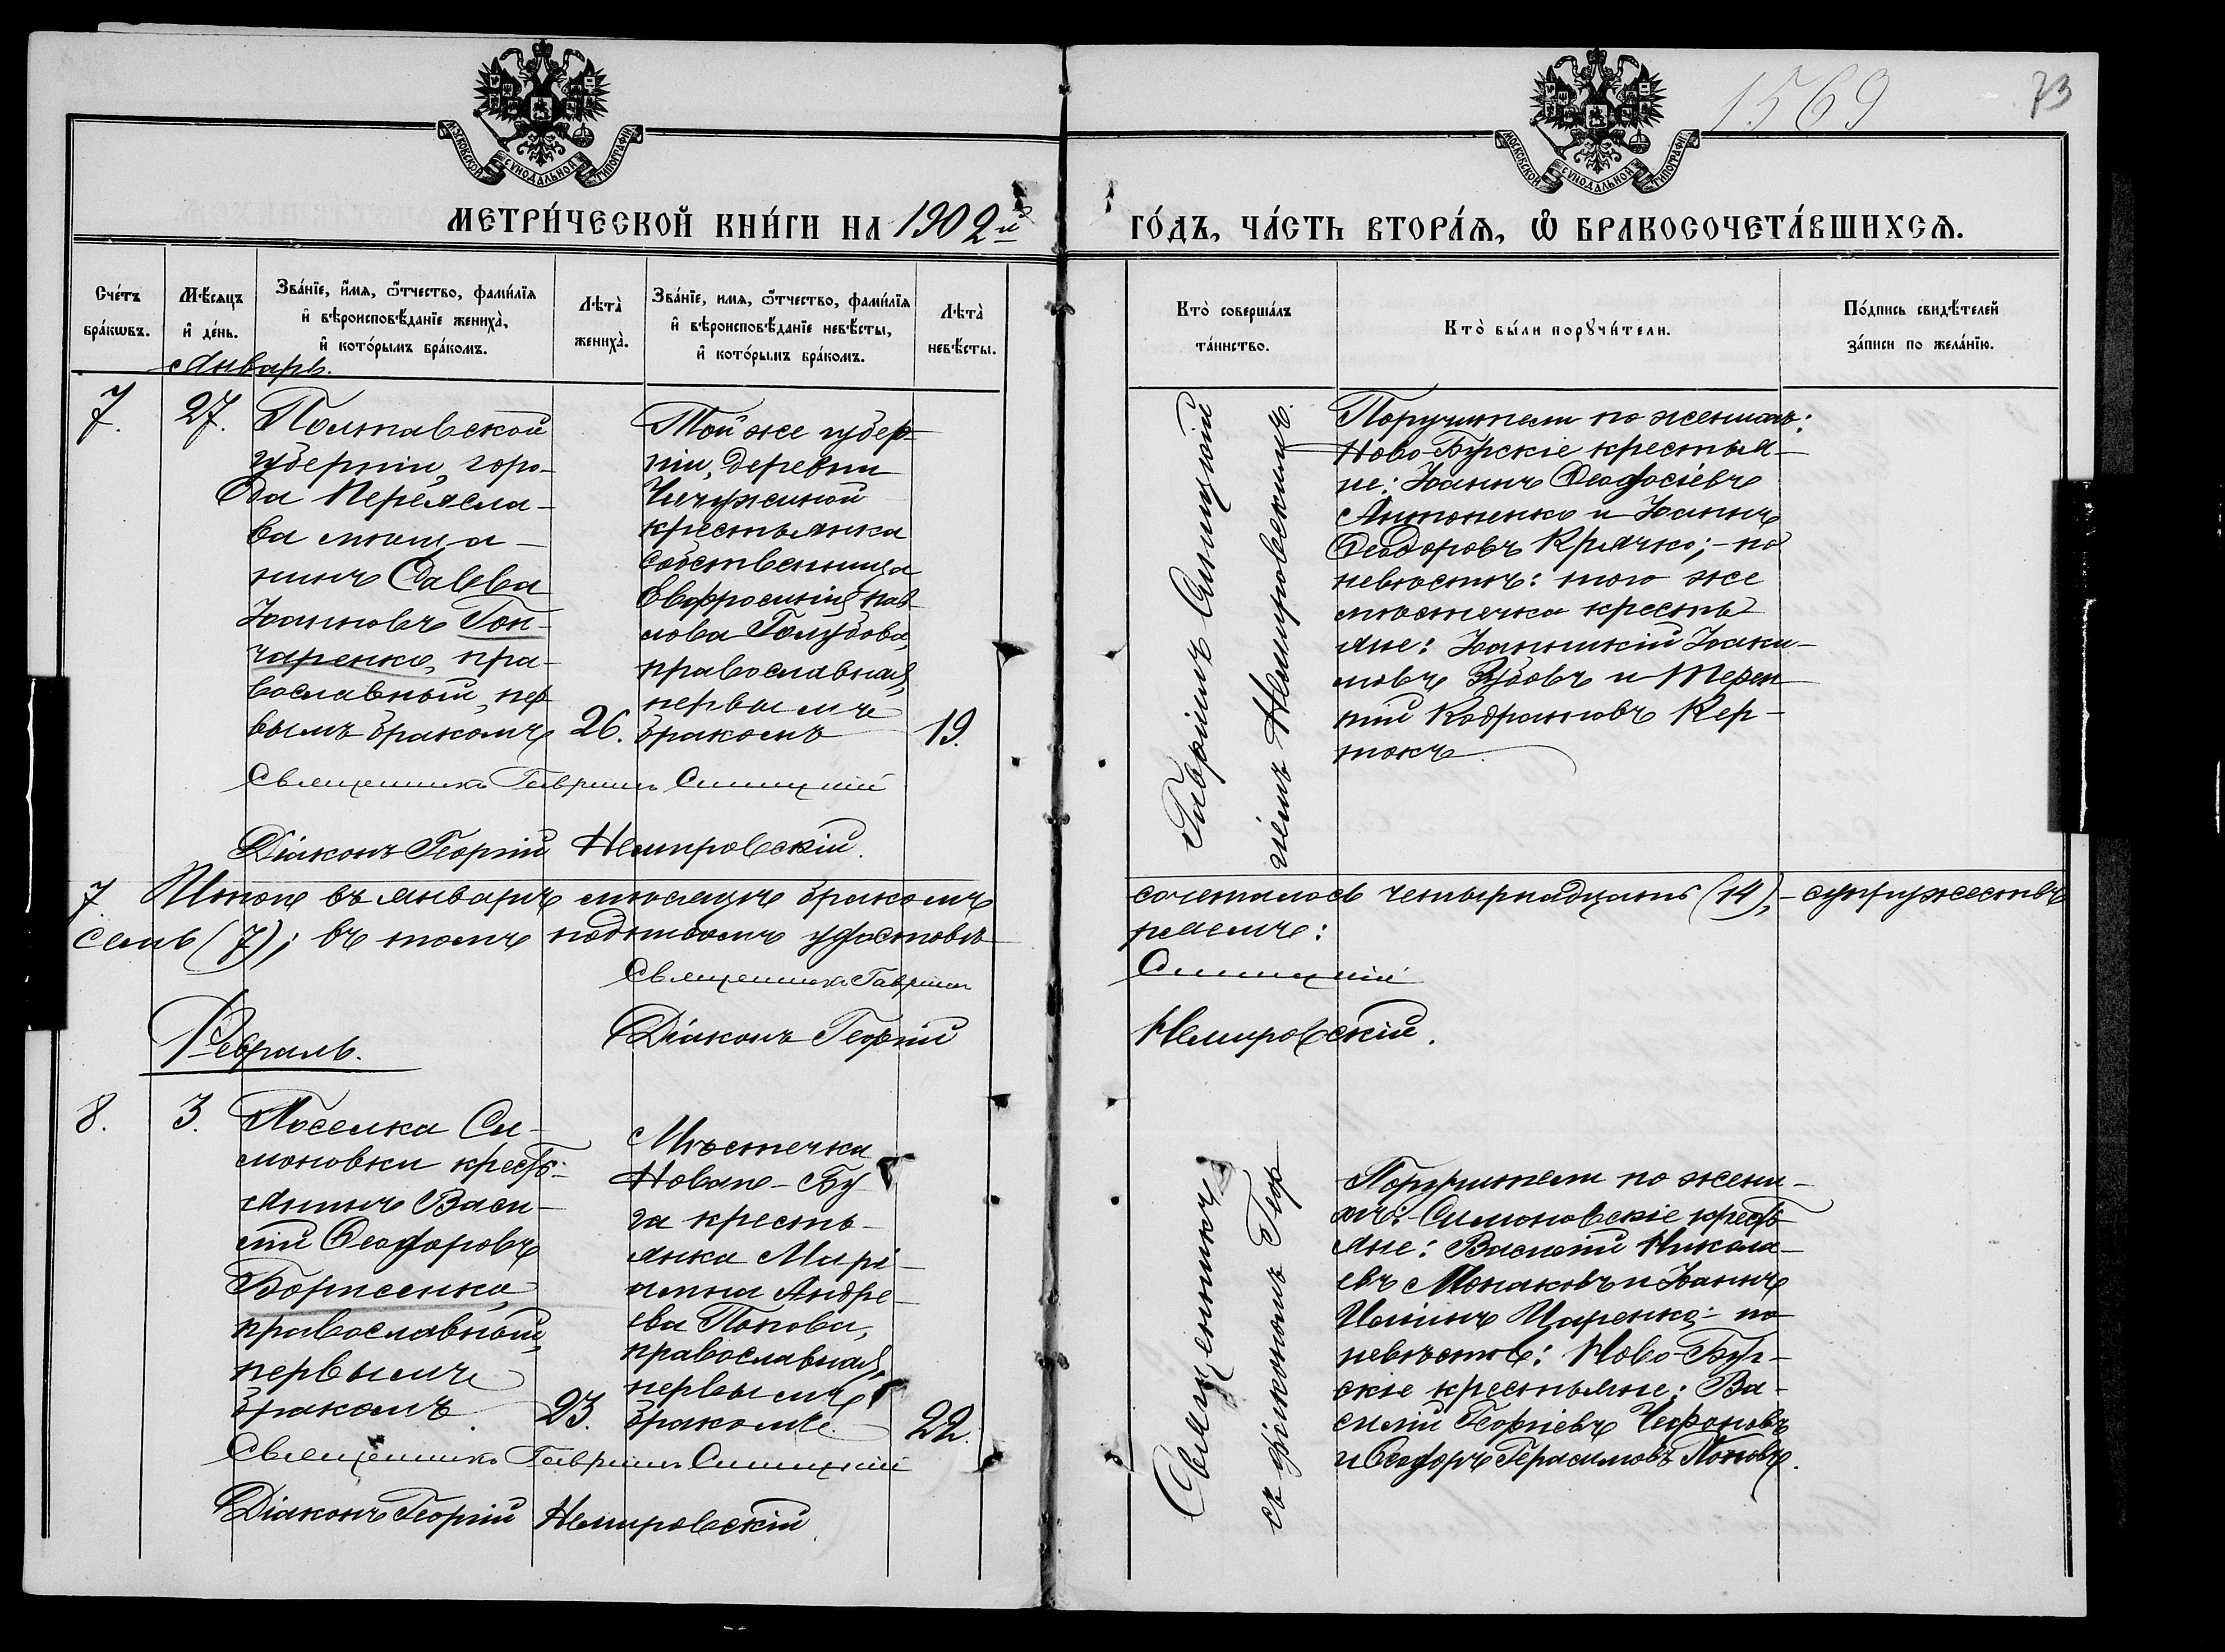 1569
73
МОСКОВСКОЙ СѴНОДАЛЬНОЙ ТИПОГРАФІИ
МОСКОВСКОЙ СѴНОДАЛЬНОЙ ТИПОГРАФІИ
МЕТРИ́ЧЕСКОЙ КНИ́ГИ НА 1902й
ГО́ДЪ, ЧА́СТЬ ВТОРА́Ѧ, Ѽ БРАКОСОЧЕТА́ВШИХСѦ.
Сче́тъ
бра́кѡвъ.
Мѣ́сяцъ
и҆ де́нь.
Зва́нїе, и҆́мѧ, ѻ҆́тчество, фами́лїѧ
и҆ вѣроисповѣ́данїе жениха̀,
и҆ кото́рымъ бра́комъ.
Лѣта̀
жениха̀.
Зва́нїе, имѧ, ѻ҆́тчество, фами́лїѧ
и҆ вѣроисповѣ́данїе невѣ́сты,
и҆ кото́рымъ бра́комъ.
Лѣта̀
невѣ́сты.
Кто̀ соверша́лъ
та́инство.
Кто̀ бы́ли порꙋчи́тели.
По́дпись свидѣ́телей
за́писи по жела́нїю.
Январь.
7.
27.
Полтавской
губерніи, горо-
да Переясла-
ва мѣща-
нинъ Савва
Іоанновъ Гон-
чаренко, пра-
вославный, пер
вымъ бракомъ
26.
Той же губер-
ніи, деревни
крестьянка
собственница
Евфросинія Пав
лова Голубова,
православная,
первымъ
бракомъ
19.
Гавріилъ Синицкій
гіемъ Немировскимъ.
Поручители по женихѣ:
Ново-Бугскіе крестья-
не: Іоаннъ Ѳеодосіевъ
Антоненко и Іоаннъ
Ѳеодоровъ Крячко; - по
невѣстѣ: того же
мѣстечка кресть
яне: Іоанникій Іоаки-
мовъ Зубовъ и Терен
тій Кодратовъ Кер-
токъ.
Священникъ Гавріилъ Синицкій
Діаконъ Георгій Немировскій.
7. Итого въ январѣ мѣсяцѣ бракомъ сочеталось четырнадцать (14), - супружествъ
семь (7); въ томъ подписомъ удостовѣ ряемъ:
Священникъ Гавріилъ Синицкій
Діаконъ Георгій Немировскій.
Февраль.
8.
3.
Поселка Си-
моновки кресть-
янинъ Васи-
лій Ѳеодоровъ
Борисенко,
православный,
первымъ
бракомъ.
23.
Мѣстечка
Новаго-Бу
га кресть-
янка Марі-
амна Андре-
ева Попова,
православная,
первымъ
бракомъ.
22.
Священникъ
съ діакономъ Геор
Поручители по жени-
хѣ: Симоновскіе кресть
яне: Василій Никола-
евъ Монаковъ и Іоаннъ
Царенко; - по
невѣстѣ: Ново-Буг-
скіе крестьяне: Ва-
силій Георгіевъ
и Ѳеодоръ Герасимовъ Поповъ.
Священникъ Гавріилъ Синицкій
Діаконъ Георгій Немировскій.